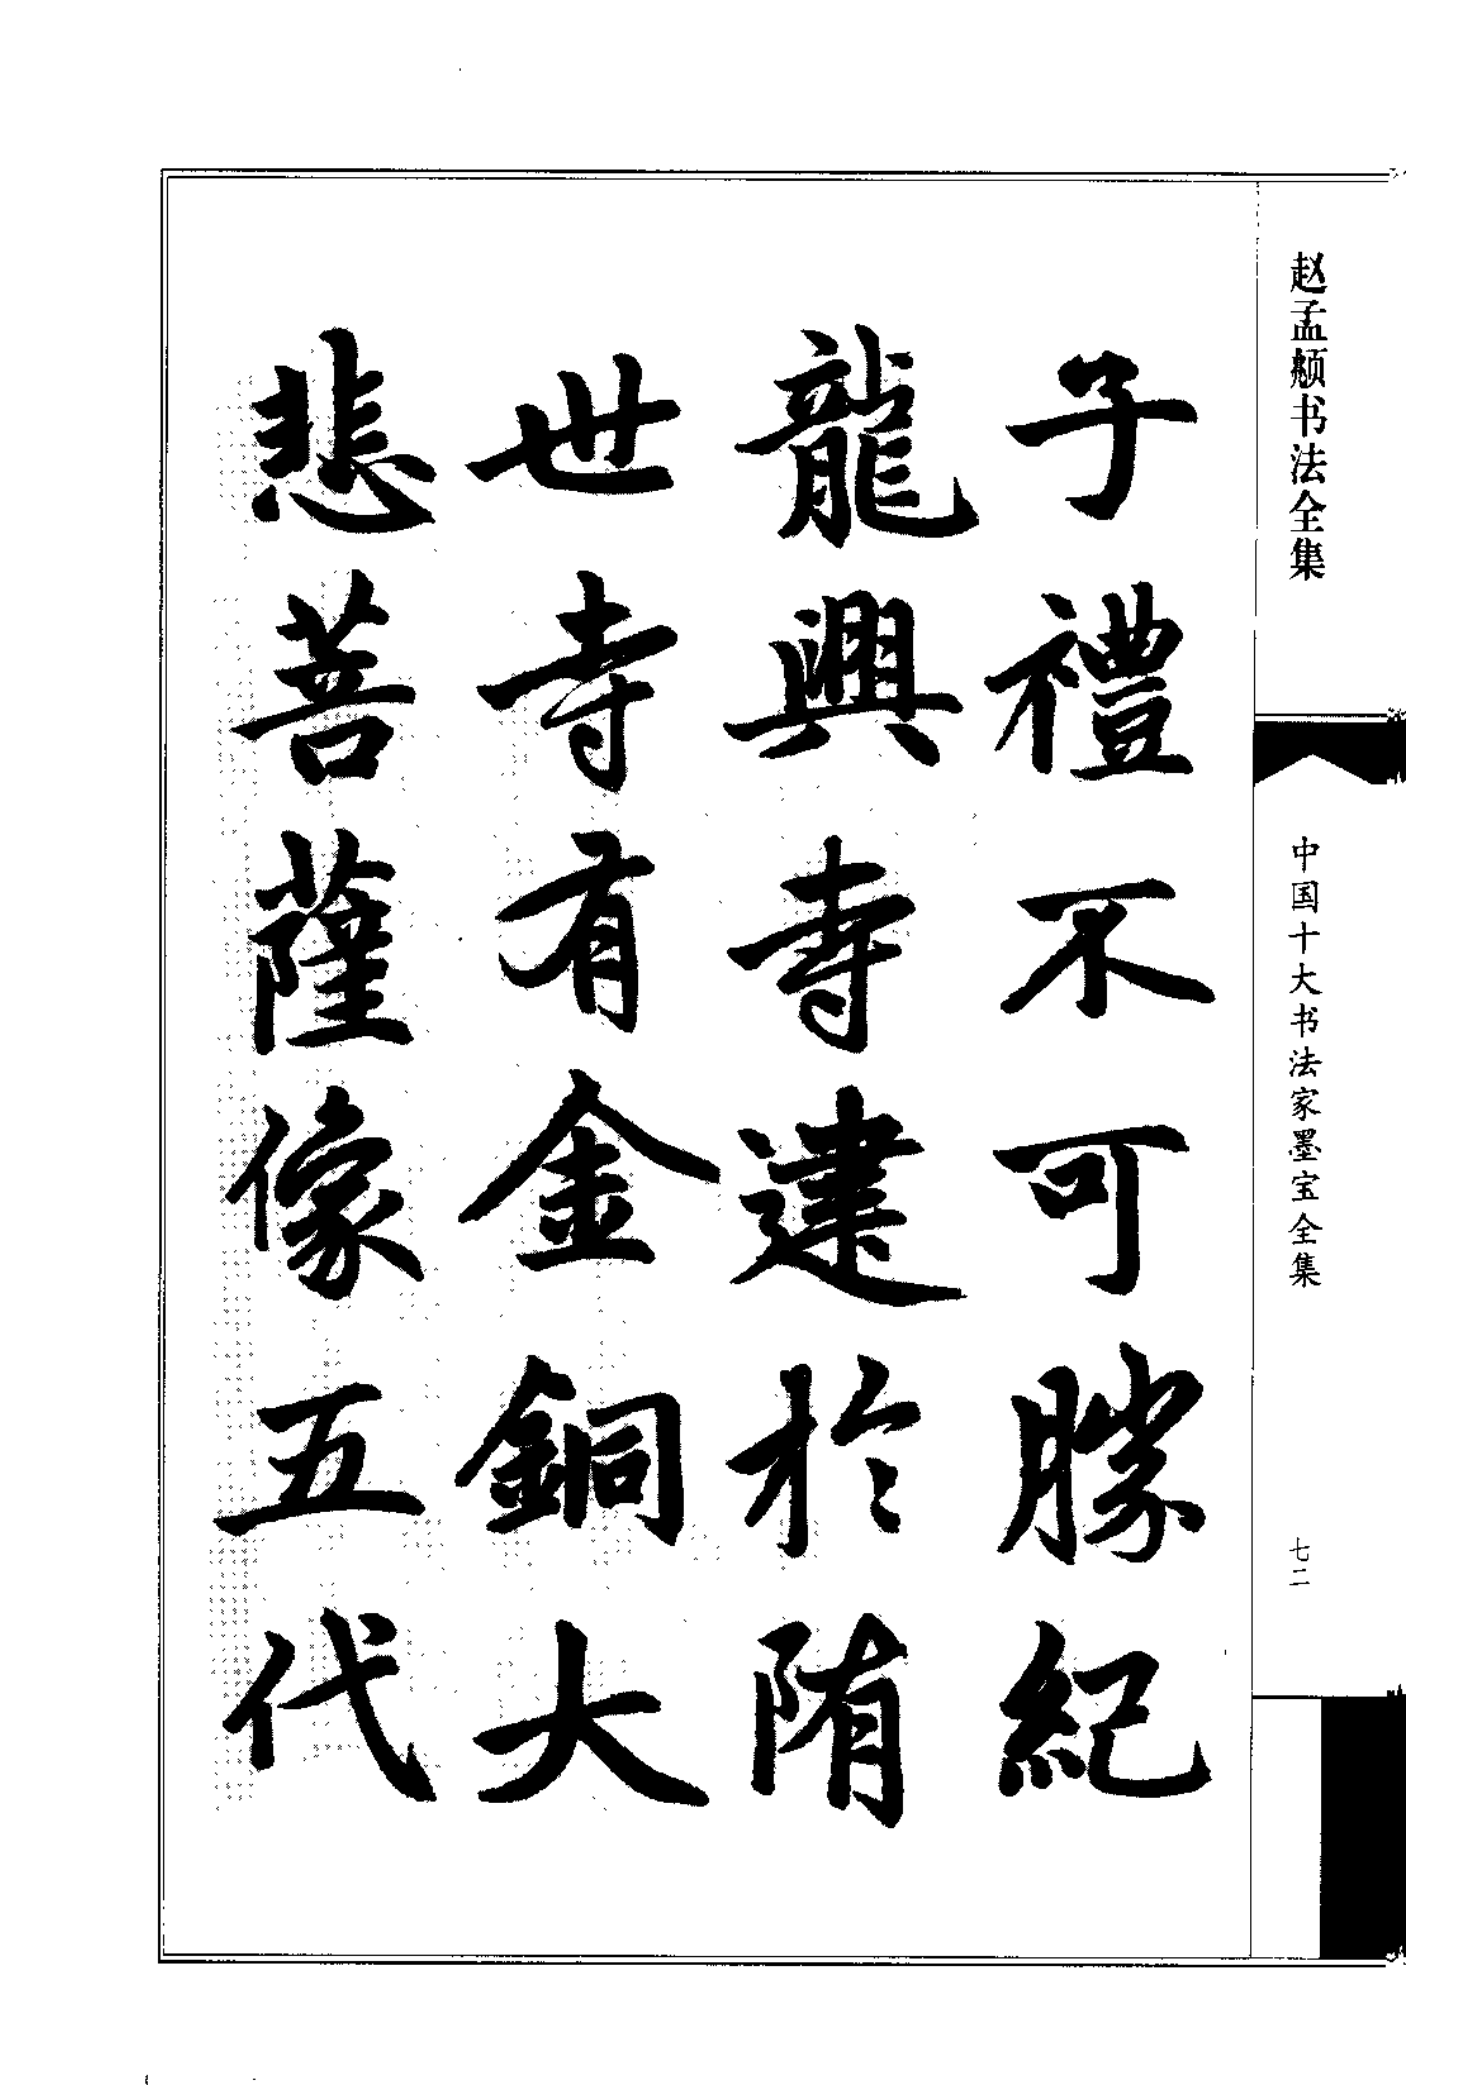 赵孟頫书法全集
中国十大书法家墨宝全集
七二
子禮不可勝紀
龍興寺建於隋
世寺有金銅大
悲菩薩像五代